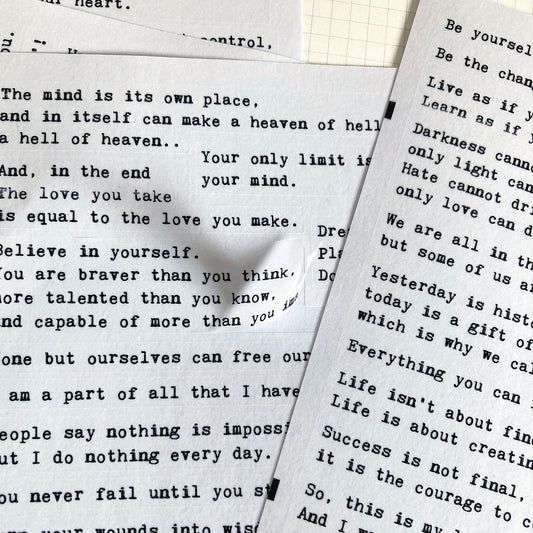 ur heart.
control,
The mind is its own place,
and in itself can make a heaven of hell
a hell of heaven..
Your only limit is
your mind.
And, in the end
The love you take
is equal to the love you make.
Believe in yourself.
You are braver than you think,
more talented than you know,
and capable of more than you im
Dre
Pla
Do
one but ourselves can free our
am a part of all that I have
eople say nothing is impossi
ut I do nothing every day.
ou never fail until you st
your wounds into wis
Be yoursel
Be the chan
Live as if y
Learn as if y
Darkness canno
only light can
Hate cannot dri
only love can d
We are all in th
but some of us ar
Yesterday is histo
today is a gift of
which is why we cal
Everything you can i
Life isn't about find
Life is about creatin
Success is not final,
it is the courage to c
So, this is my l
And I w